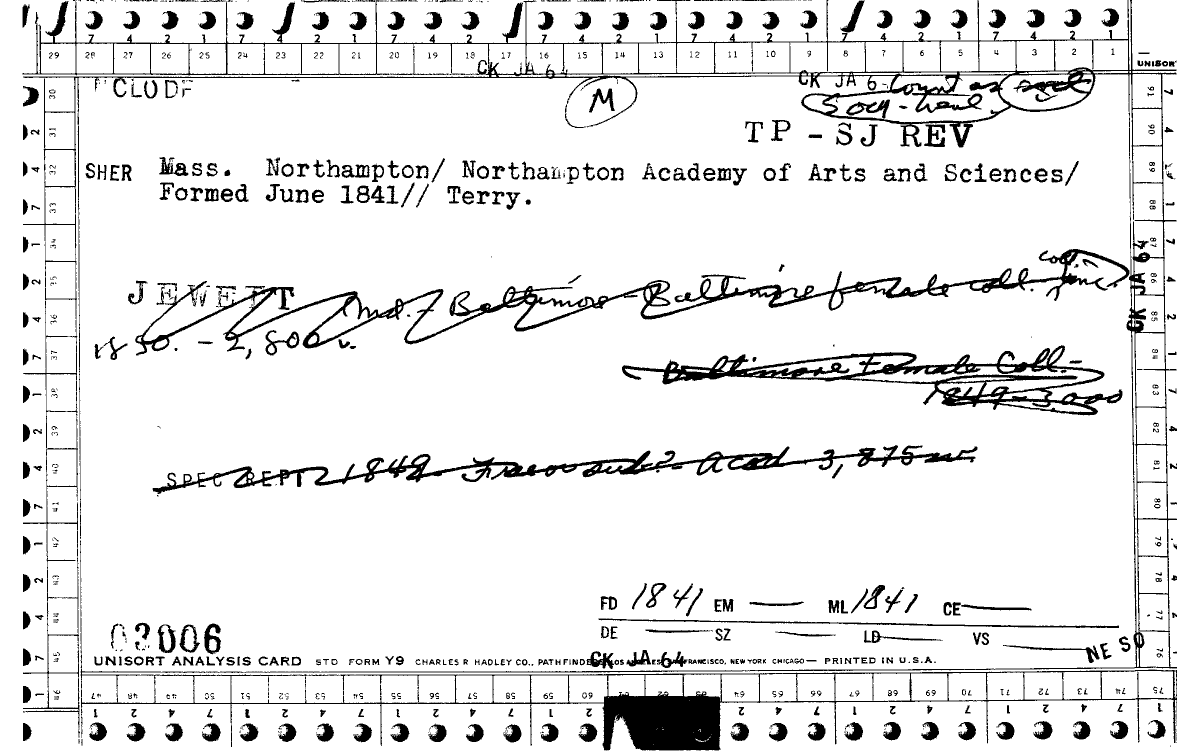 7 4 2 1 7 4 2 1 7 4 2 1 7 4 2 1 7 4 2 1 7 4 2 1 7 4 2 1
29 28 27 26 25 24 23 22 21 20 19 18 17 16 15 14 13 12 11 10 9 8 7 6 5 4 3 2 1
UNISORT
CK JA 64
CK JA 6 Count as
M
Socy-
TP - SJ REV
SHER Mass. Northampton/ Northampton Academy of Arts and Sciences/
Formed June 1841// Terry.
JEWETT Md. - Baltimore - Baltimore female coll. inc.
1850. - 2,800 v.
Baltimore Female Coll. -
1849 - 3,000
SPEC REPT 1849 - Acad. 3,875 v.
CK JA 64
FD 1841 EM — ML 1841 CE —
DE — SZ — LD — VS —
03006
NE SO
UNISORT ANALYSIS CARD STD FORM Y9 CHARLES R HADLEY CO., PATHFINDERS LOS ANGELES SAN FRANCISCO, NEW YORK CHICAGO — PRINTED IN U.S.A.
CK JA 64
47 48 49 50 51 52 53 54 55 56 57 58 59 60 61 62 63 64 65 66 67 68 69 70 71 72 73 74 75
1 2 4 7 1 2 4 7 1 2 4 7 1 2 4 7 1 2 4 7 1 2 4 7